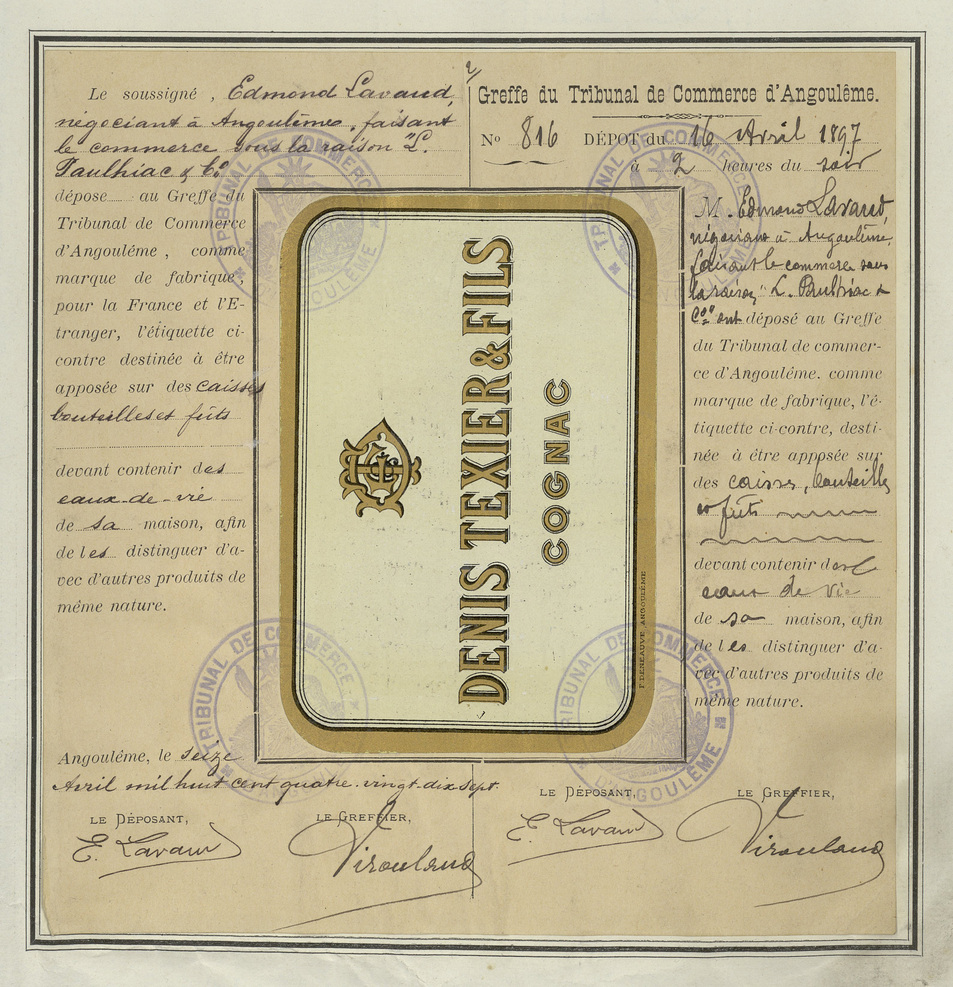 Le soussigné, Edmond Lavaud,
négociant à Angoulême, faisant
le commerce sous la raison "L.
Paulhiac & Cº
dépose au Greffe du
Tribunal de Commerce
d'Angouléme, comme
marque de fabrique,
pour la France et l'E-
tranger, l'étiquette ci-
contre destinée à être
apposée sur des caisses
bouteilles et fûts
devant contenir des
eaux-de-vie
de sa maison, afin
de les distinguer d'a-
vec d'autres produits de
même nature.
Angouléme, le seize
Avril mil huit cent quatre-vingt-dix-sept.
LE DÉPOSANT,
E. Lavaud
LE GREFFIER,
DENIS TEXIER & FILS
COGNAC
Greffe du Tribunal de Commerce d'Angoulême.
Nº 816 DÉPOT du 16 Avril 1897
à 2 heures du soir
M. Edmond Lavaud,
négociant à Angoulême,
faisant le commerce sous
la raison "L. Paulhiac &
Cie ont déposé au Greffe
du Tribunal de commer-
ce d'Angouléme. comme
marque de fabrique, l'é-
tiquette ci-contre, desti-
née à être apposée sur
des caisses, bouteilles
et fûts
devant contenir des
eaux de vie
de sa maison, afin
de les distinguer d'a-
vec d'autres produits de
même nature.
LE DÉPOSANT,
E. Lavaud
LE GREFFIER,
TRIBUNAL DE COMMERCE
D'ANGOULÊME